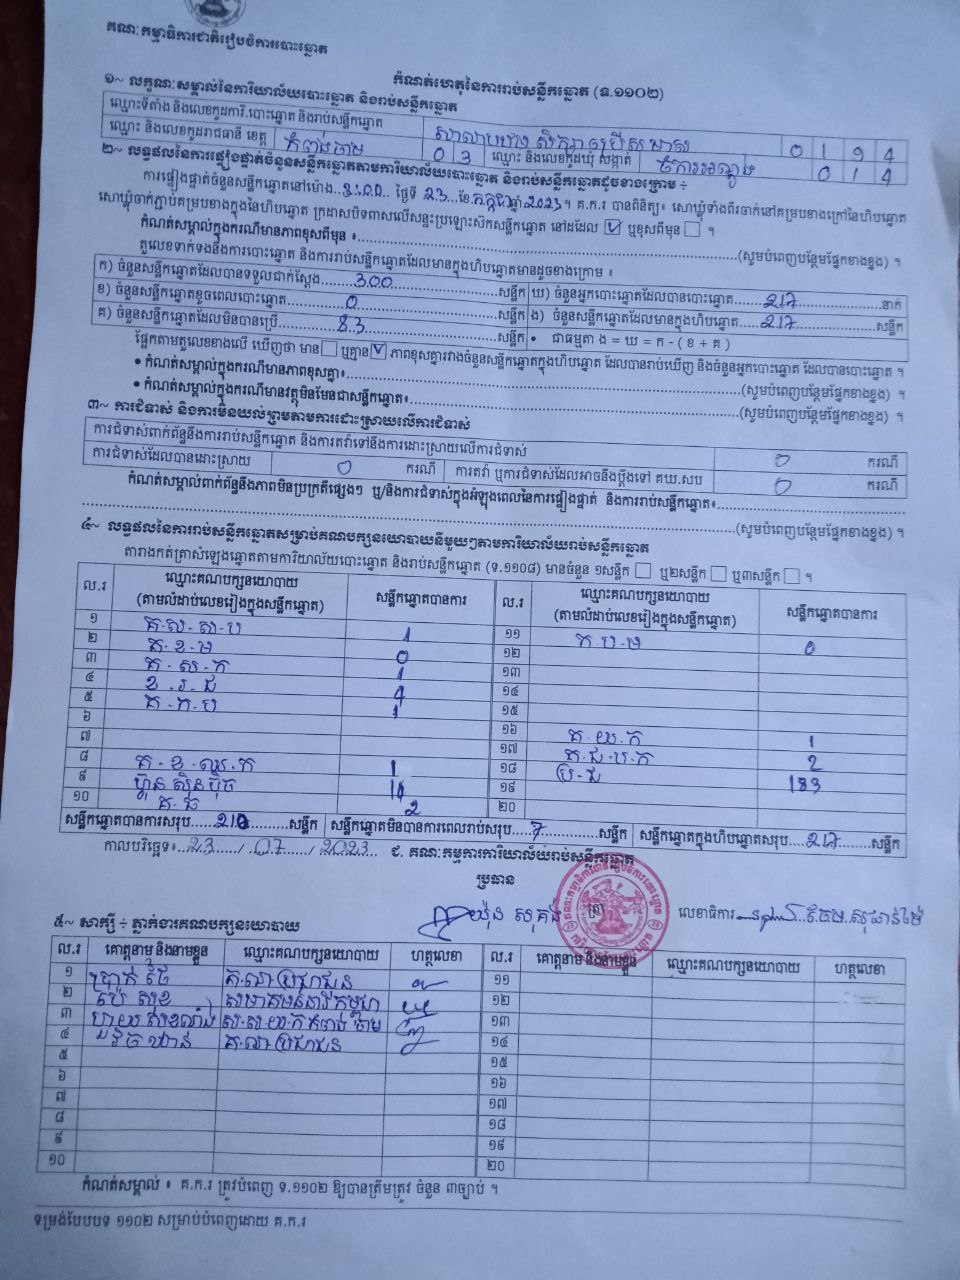 គណៈកម្មាធិការជាតិរៀបចំការបោះឆ្នោត
កំណត់ហេតុនៃការរាប់សន្លឹកឆ្នោត (ទ.១១០២)
១~ លក្ខណៈសម្គាល់នៃការិយាល័យបោះឆ្នោត និងរាប់សន្លឹកឆ្នោត
ឈ្មោះទីតាំង និងលេខកូដការិ.បោះឆ្នោត និងរាប់សន្លឹកឆ្នោត 0 1 9 4
ឈ្មោះ និងលេខកូដរាជធានី ខេត្ត កំពង់ចាម 0 3 ឈ្មោះ និងលេខកូដឃុំ សង្កាត់ 0 1 4
២~ លទ្ធផលនៃការផ្ទៀងផ្ទាត់ចំនួនសន្លឹកឆ្នោតតាមការិយាល័យបោះឆ្នោត និងរាប់សន្លឹកឆ្នោតដូចខាងក្រោម ÷
ការផ្ទៀងផ្ទាត់ចំនួនសន្លឹកឆ្នោតនៅម៉ោង ថ្ងៃទី 23 ខែ កក្កដា ឆ្នាំ 2023។ គ.ក.រ បានពិនិត្យ៖ សោឃ្លុំទាំងពីរចាក់នៅគម្របខាងក្រៅនៃហិបឆ្នោត
សោឃ្លុំចាក់ភ្ជាប់គម្របខាងក្នុងនៃហិបឆ្នោត ក្រដាសបិទពាសលើសន្ទះប្រឡោះស៊កសន្លឹកឆ្នោត នៅដដែល ☑ ឬខុសពីមុន ☐ ។
កំណត់សម្គាល់ក្នុងករណីមានភាពខុសពីមុន ៖ (សូមបំពេញបន្ថែមផ្នែកខាងខ្នង) ។
តួលេខទាក់ទងនឹងការបោះឆ្នោត និងការរាប់សន្លឹកឆ្នោតដែលមានក្នុងហិបឆ្នោតមានដូចខាងក្រោម ៖
ក) ចំនួនសន្លឹកឆ្នោតដែលបានទទួលជាក់ស្តែង 300 សន្លឹក ឃ) ចំនួនអ្នកបោះឆ្នោតដែលបានបោះឆ្នោត 217 នាក់
ខ) ចំនួនសន្លឹកឆ្នោតខូចពេលបោះឆ្នោត 0 សន្លឹក ង) ចំនួនសន្លឹកឆ្នោតដែលមានក្នុងហិបឆ្នោត 217 សន្លឹក
គ) ចំនួនសន្លឹកឆ្នោតដែលមិនបានប្រើ 83 សន្លឹក • ជាធម្មតា ង = ឃ = ក - ( ខ + គ )
ផ្អែកតាមតួលេខខាងលើ ឃើញថា មាន ☐ ឬគ្មាន ☑ ភាពខុសគ្នារវាងចំនួនសន្លឹកឆ្នោតក្នុងហិបឆ្នោត ដែលបានរាប់ឃើញ និងចំនួនអ្នកបោះឆ្នោត ដែលបានបោះឆ្នោត ។
• កំណត់សម្គាល់ក្នុងករណីមានភាពខុសគ្នា៖ (សូមបំពេញបន្ថែមផ្នែកខាងខ្នង) ។
• កំណត់សម្គាល់ក្នុងករណីមានវត្ថុមិនមែនជាសន្លឹកឆ្នោត៖ (សូមបំពេញបន្ថែមផ្នែកខាងខ្នង) ។
៣~ ការជំទាស់ និងការមិនយល់ព្រមតាមការដោះស្រាយលើការជំទាស់
ការជំទាស់ពាក់ព័ន្ធនឹងការរាប់សន្លឹកឆ្នោត និងការតវ៉ាទៅនឹងការដោះស្រាយលើការជំទាស់ 0 ករណី
ការជំទាស់ដែលបានដោះស្រាយ 0 ករណី ការតវ៉ា ឬការជំទាស់ដែលអាចនឹងប្តឹងទៅ គឃ.សប 0 ករណី
កំណត់សម្គាល់ពាក់ព័ន្ធនឹងភាពមិនប្រក្រតីផ្សេងៗ ឬ/និងការជំទាស់ក្នុងអំឡុងពេលនៃការផ្ទៀងផ្ទាត់ និងការរាប់សន្លឹកឆ្នោត៖
(សូមបំពេញបន្ថែមផ្នែកខាងខ្នង) ។
៤~ លទ្ធផលនៃការរាប់សន្លឹកឆ្នោតសម្រាប់គណបក្សនយោបាយនីមួយៗតាមការិយាល័យរាប់សន្លឹកឆ្នោត
តារាងកត់ត្រាសំឡេងឆ្នោតតាមការិយាល័យបោះឆ្នោត និងរាប់សន្លឹកឆ្នោត (ទ.១១០៨) មានចំនួន ១សន្លឹក ☐ ឬ២សន្លឹក ☐ ឬ៣សន្លឹក ☐ ។
ល.រ ឈ្មោះគណបក្សនយោបាយ (តាមលំដាប់លេខរៀងក្នុងសន្លឹកឆ្នោត) សន្លឹកឆ្នោតបានការ ល.រ ឈ្មោះគណបក្សនយោបាយ (តាមលំដាប់លេខរៀងក្នុងសន្លឹកឆ្នោត) សន្លឹកឆ្នោតបានការ
១ គ.ស.ស.ប 1 ១១ ក.ប.ម 0
២ គ.ខ.ម 0 ១២
៣ គ.ស.ក 1 ១៣
៤ ខ.រ.ជ 4 ១៤
៥ គ.ក.ប 1 ១៥
៦ ១៦ គ.យ.ក 1
៧ ១៧ គ.ជ.ប.ក 2
៨ គ.ខ.ឈ.ក 1 ១៨ ប្រ.ជ 183
៩ ហ៊្វុនស៊ិនប៉ិច ១៩
១០ គ.ធ 2 ២០
សន្លឹកឆ្នោតបានការសរុប 210 សន្លឹក សន្លឹកឆ្នោតមិនបានការពេលរាប់សរុប 7 សន្លឹក សន្លឹកឆ្នោតក្នុងហិបឆ្នោតសរុប 217 សន្លឹក
កាលបរិច្ឆេទ៖ 23 / 07 / 2023 ជ. គណៈកម្មការការិយាល័យរាប់សន្លឹកឆ្នោត
ប្រធាន
លេខាធិការ
៥~ សាក្សី ÷ ភ្នាក់ងារគណបក្សនយោបាយ
ល.រ គោត្តនាម និងនាមខ្លួន ឈ្មោះគណបក្សនយោបាយ ហត្ថលេខា ល.រ គោត្តនាម និងនាមខ្លួន ឈ្មោះគណបក្សនយោបាយ ហត្ថលេខា
១ ប្រាក់ ថៃ គ.ណ.ប្រជាជន ១១
២ ប៉េ សុខ ១២
៣ ១៣
៤ គ.ណ.ប្រជាជន ១៤
៥ ១៥
៦ ១៦
៧ ១៧
៨ ១៨
៩ ១៩
១០ ២០
កំណត់សម្គាល់ ៖ គ.ក.រ ត្រូវបំពេញ ទ.១១០២ ឱ្យបានត្រឹមត្រូវ ចំនួន ៣ច្បាប់ ។
ទម្រង់បែបបទ ១១០២ សម្រាប់បំពេញដោយ គ.ក.រ